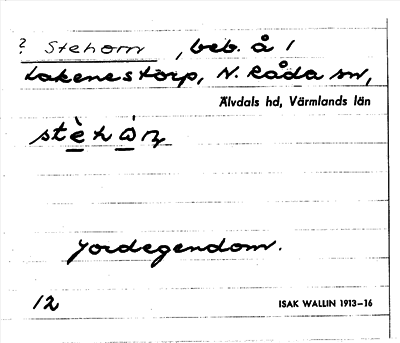 ? Stehorn, beb. å /
Lakenestorp, N. Råda sn,
Älvdals hd, Värmlands län
Jordegendom.
12 ISAK WALLIN 1913–16